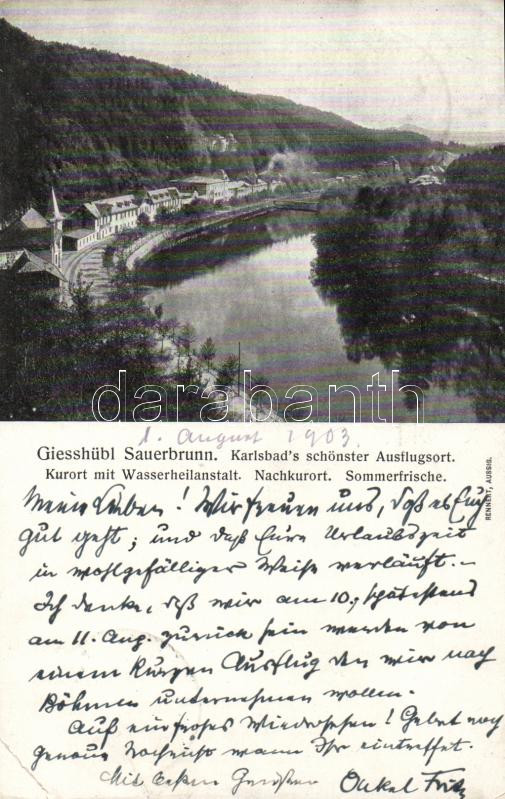 darabanth
1. August 1903.
Giesshübl Sauerbrunn. Karlsbad's schönster Ausflugsort.
Kurort mit Wasserheilanstalt. Nachkurort. Sommerfrische.
RENNERT, AUSSIG.
Meine Lieben! Wir freuen uns, daß es Euch
gut geht; und daß Eure Urlaubszeit
in wohlgefälliger Weise verläuft.-
Ich denke, daß wir am 10., spätestens
am 11. Aug. zurück sein werden von
einem kurzen Ausflug den wir nach
Böhmen unternehmen wollen.
Auf ein frohes Wiedersehen! Gebet noch
genaue Nachricht wann Ihr eintreffet.
Mit besten Grüßen Onkel Fritz